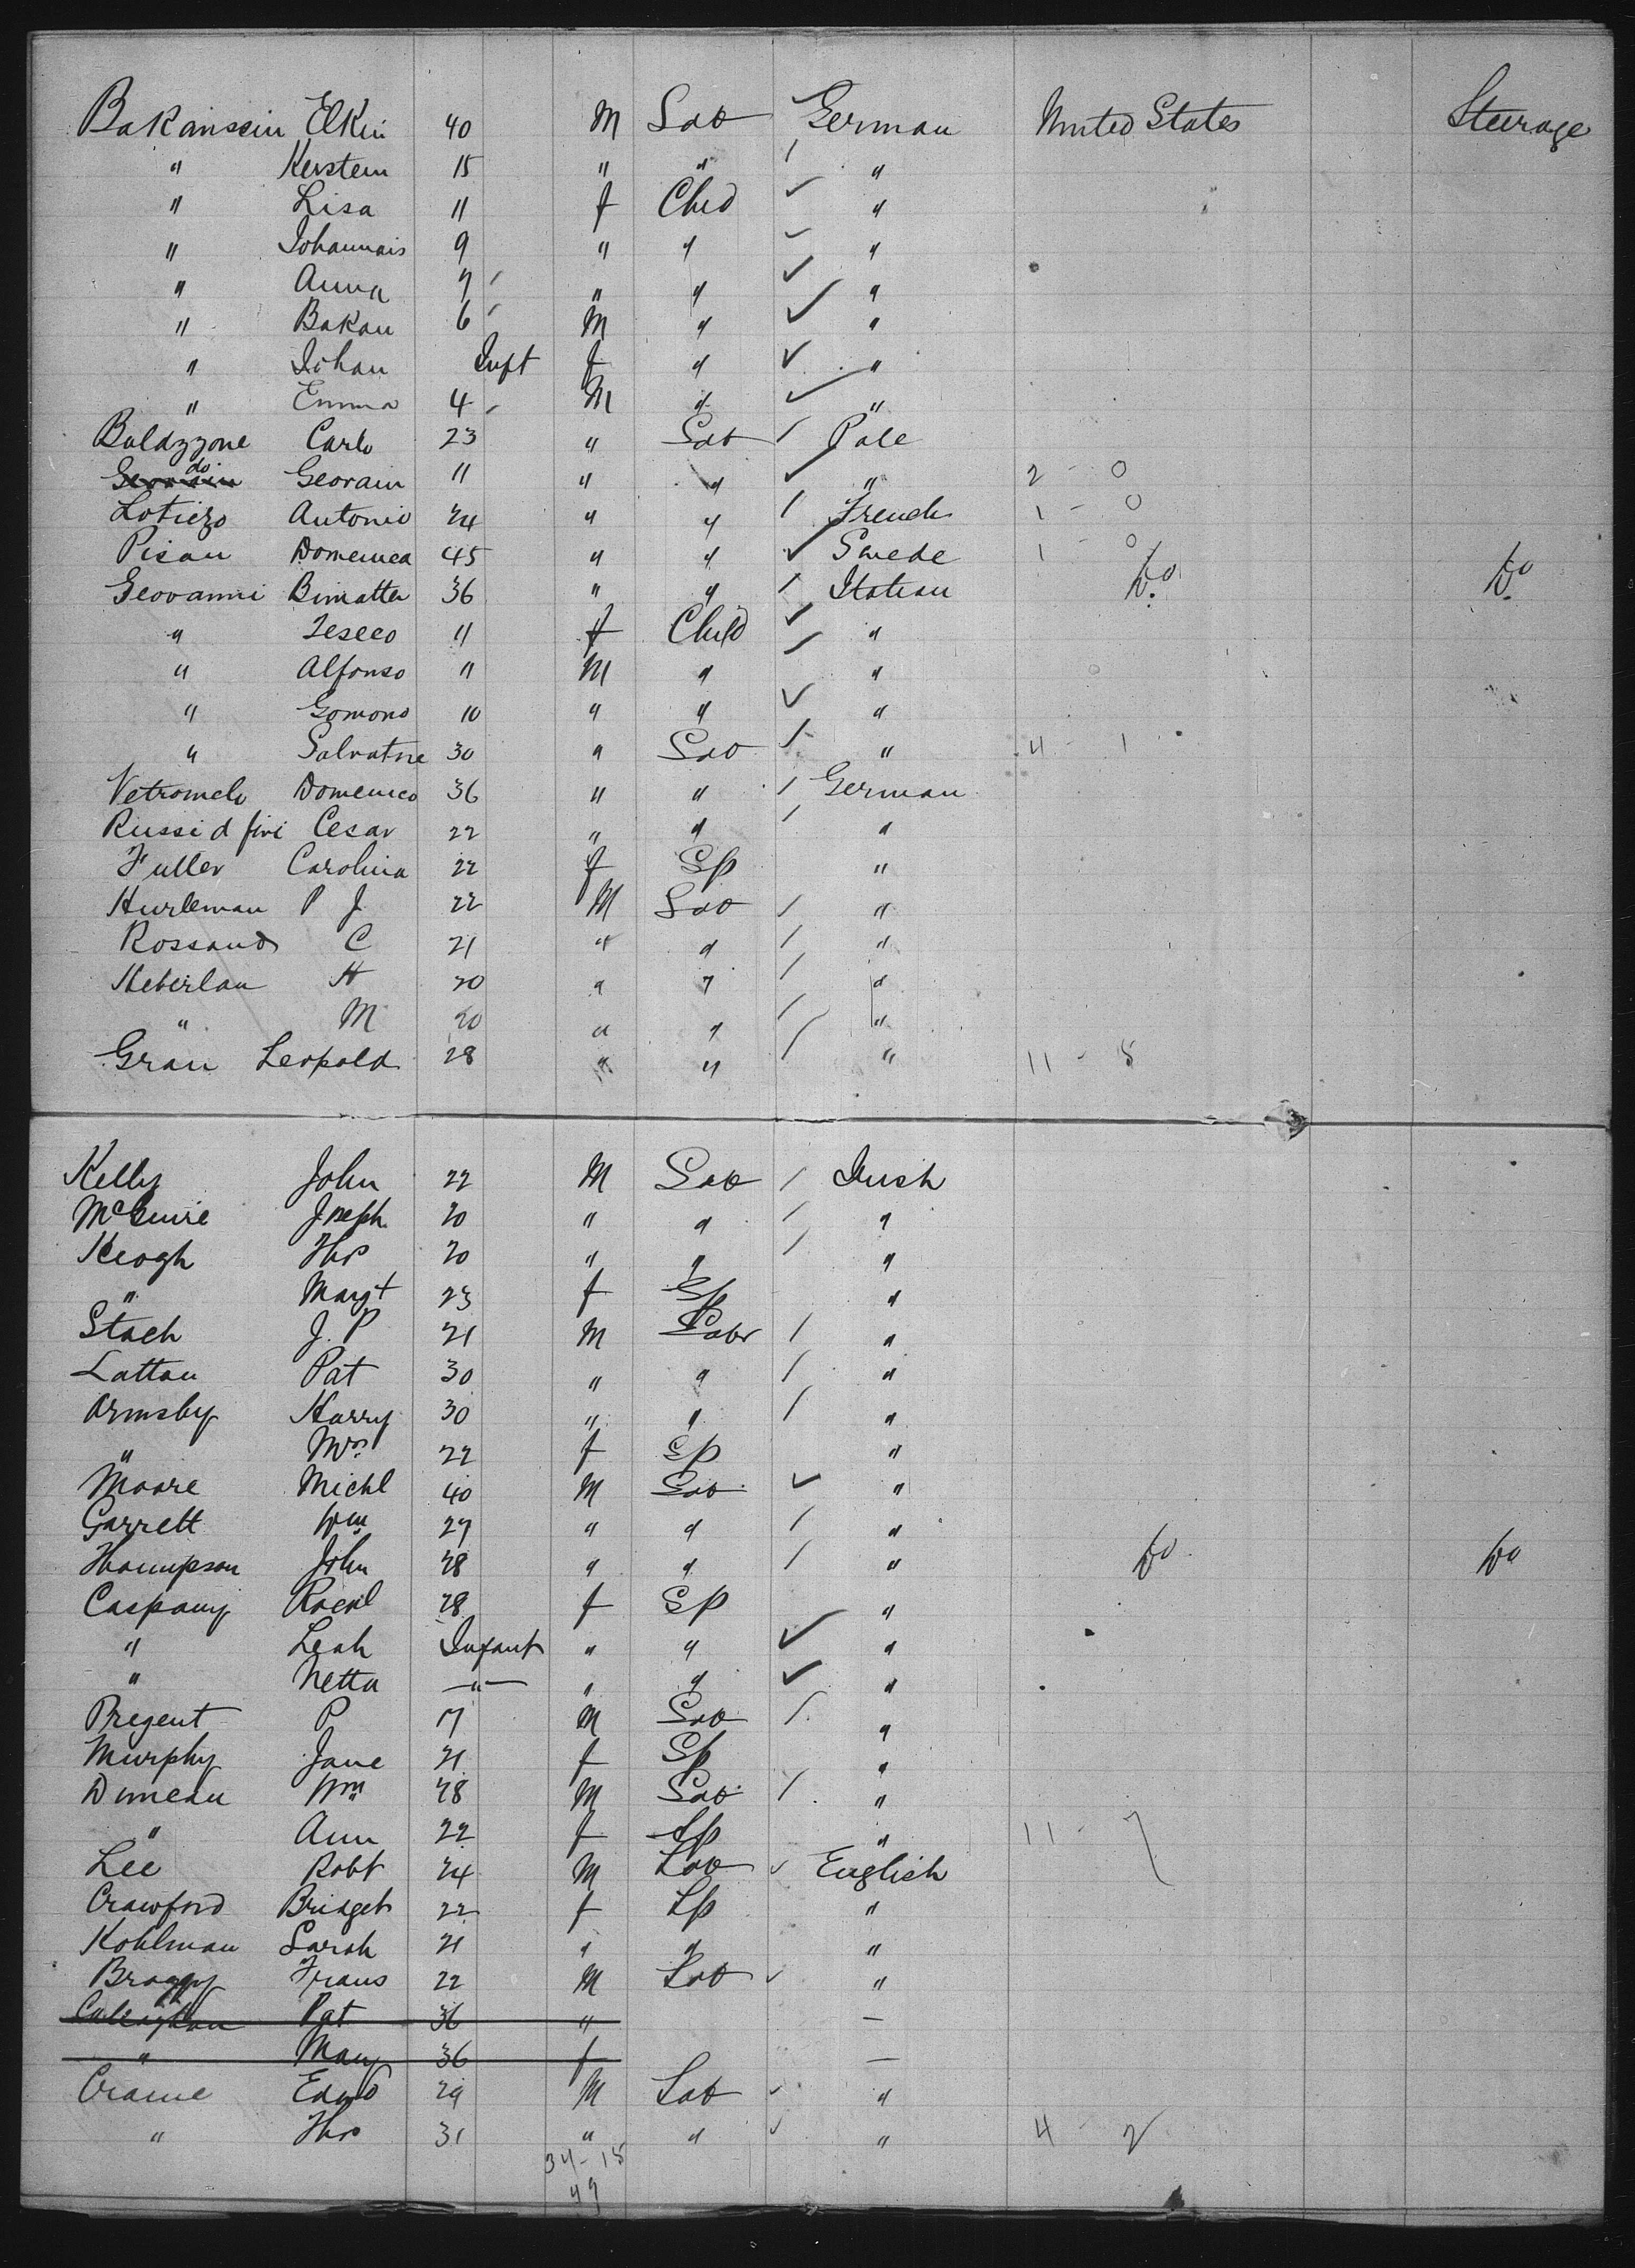 Bakanssin Elkin 40 M Lab German United States Steerage
" Kerstein 15 " " / "
" Lisa 11 f Chld ✓ "
" Johannais 9 " " ✓ "
" Anna 7 " " ✓ "
" Bakan 6 M " ✓ "
" Johan Inft f " ✓ "
" Emma 4 M " ✓ "
Baldzzone Carlo 23 " Lab / Pole
do Georain 11 " " ✓ " 2 - 0
Lotiezo Antonio 24 " " / French 1 - 0
Pisan Domenica 45 " " ✓ Swede 1 - 0
Geovanni Bimatta 36 " " / Italian Do Do
" Teseeo 11 f Child ✓ "
" Alfonso 11 M " ✓ "
" Gomono 10 " " ✓ "
" Salvatore 30 " Lab / " 4 - 1
Vetromelo Domenico 36 " " / German
Russi d fivi Cesar 22 " " / "
Fuller Carolina 22 f Sp "
Hurleman P J 22 M Lab / "
Rossand C 21 " " / "
Heberlan H 20 " " / "
" M 20 " " / "
Gran Leopold 28 " " / " 11 - 5
Kelly John 22 M Lab / Irish
McGuire Joseph 20 " " / "
Keogh Thos 20 " " / "
" Margt 23 f Sp "
Stach J. P 21 M Labr / "
Lattan Pat 30 " " / "
Ormsby Harry 30 " " / "
" Mrs 22 f Sp "
Moore Michl 40 M Lab ✓ "
Garrett Wm 27 " " / "
Thompson John 28 " " / " Do Do
Caspany Racal 28 f Sp "
" Leah Infant " " ✓ "
" Netta —"— " " ✓ "
Pregent P 17 M Lab / "
Murphy Jane 21 f Sp "
Dimeau Wm 28 M Lab / "
" Ann 22 f Sp " 11 - 7
Lee Robt 24 M Lab ✓ English
Crawford Bridget 22 f Sp "
Kohlman Sarah 21 " " "
Braggy Frans 22 M Lab ✓ "
Pat 36 " —
" Mary 36 f —
Crame Edwd 29 M Lab ✓ "
" Thos 31 " " ✓ " 4 - 2
34 - 15
49